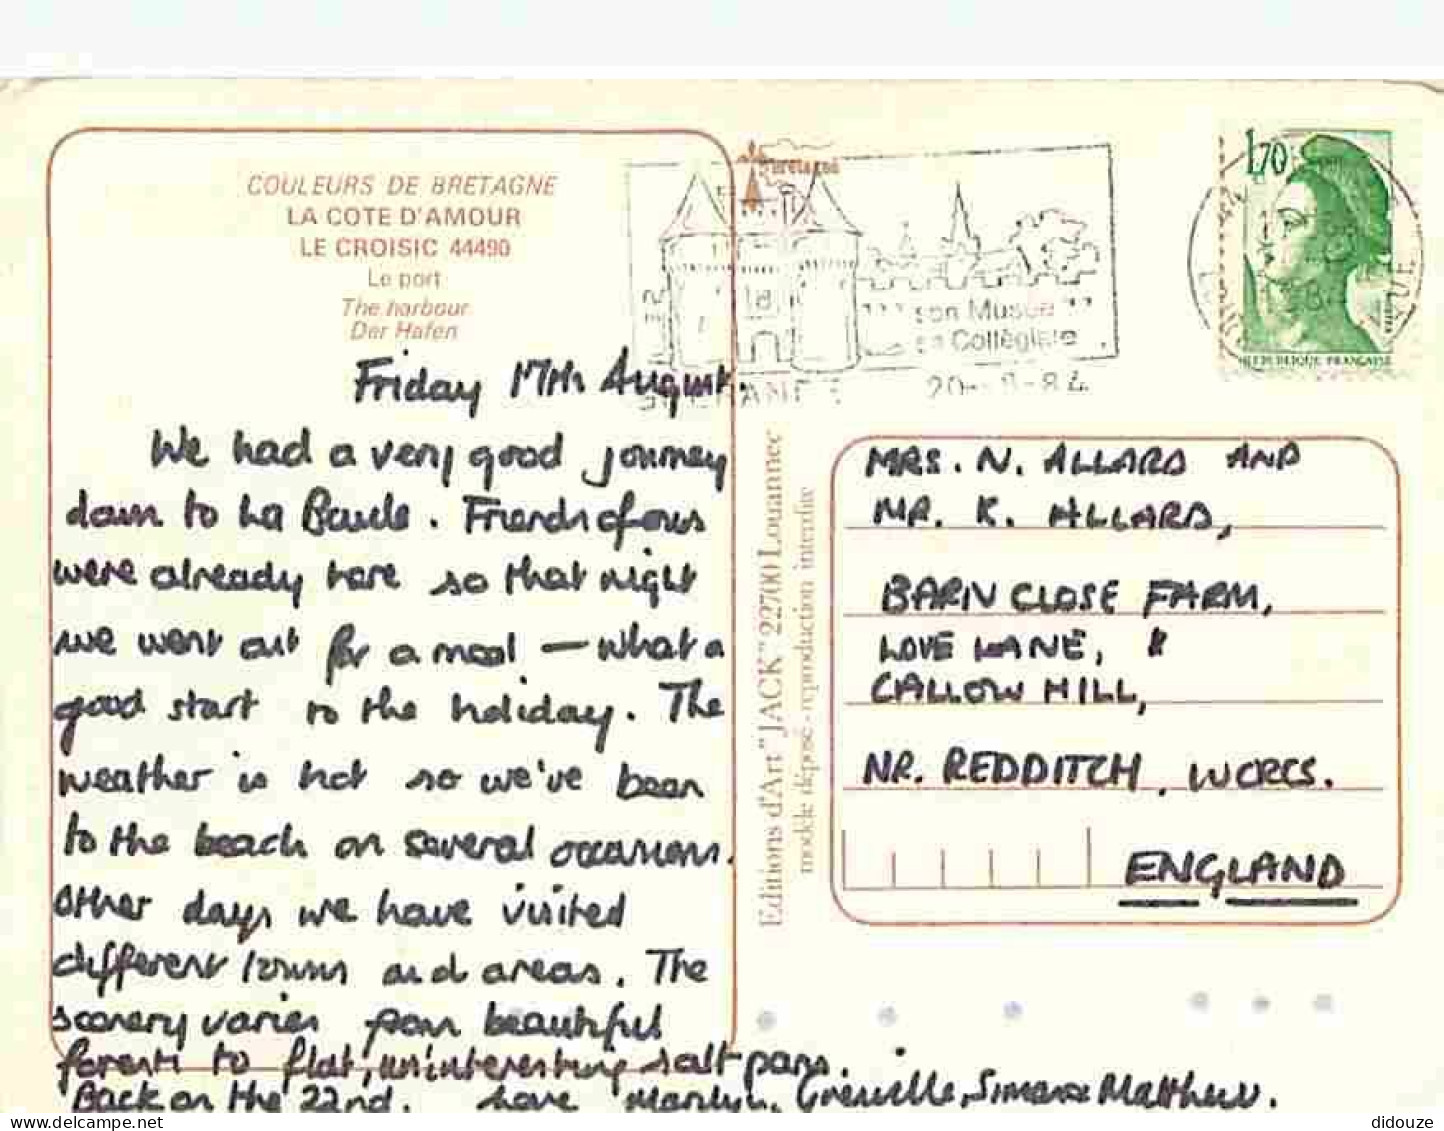 COULEURS DE BRETAGNE
LA COTE D'AMOUR
LE CROISIC 44490
Le port
The harbour
Der Hafen
Friday 17th August.
We had a very good journey
down to La Baule. Friends of ours
were already here so that night
we went out for a meal — what a
good start to the holiday. The
weather is hot so we've been
to the beach on several occasions.
Other days we have visited
different towns and areas. The
scenery varies from beautiful
forests to flat, uninteresting salt pans.
Back on the 22nd. Love Marilyn, Grenville, Simon & Matthew.
Editions d'Art "JACK" 22700 Louannec
modèle déposé - reproduction interdite
bretagne
son Musée
sa Collégiale
20-8-84
1,70
REPUBLIQUE FRANÇAISE
MRS. N. ALLARD AND
MR. K. ALLARD,
BARN CLOSE FARM,
LOVE LANE,
CALLOW HILL,
NR. REDDITCH. WORCS.
ENGLAND
didouze